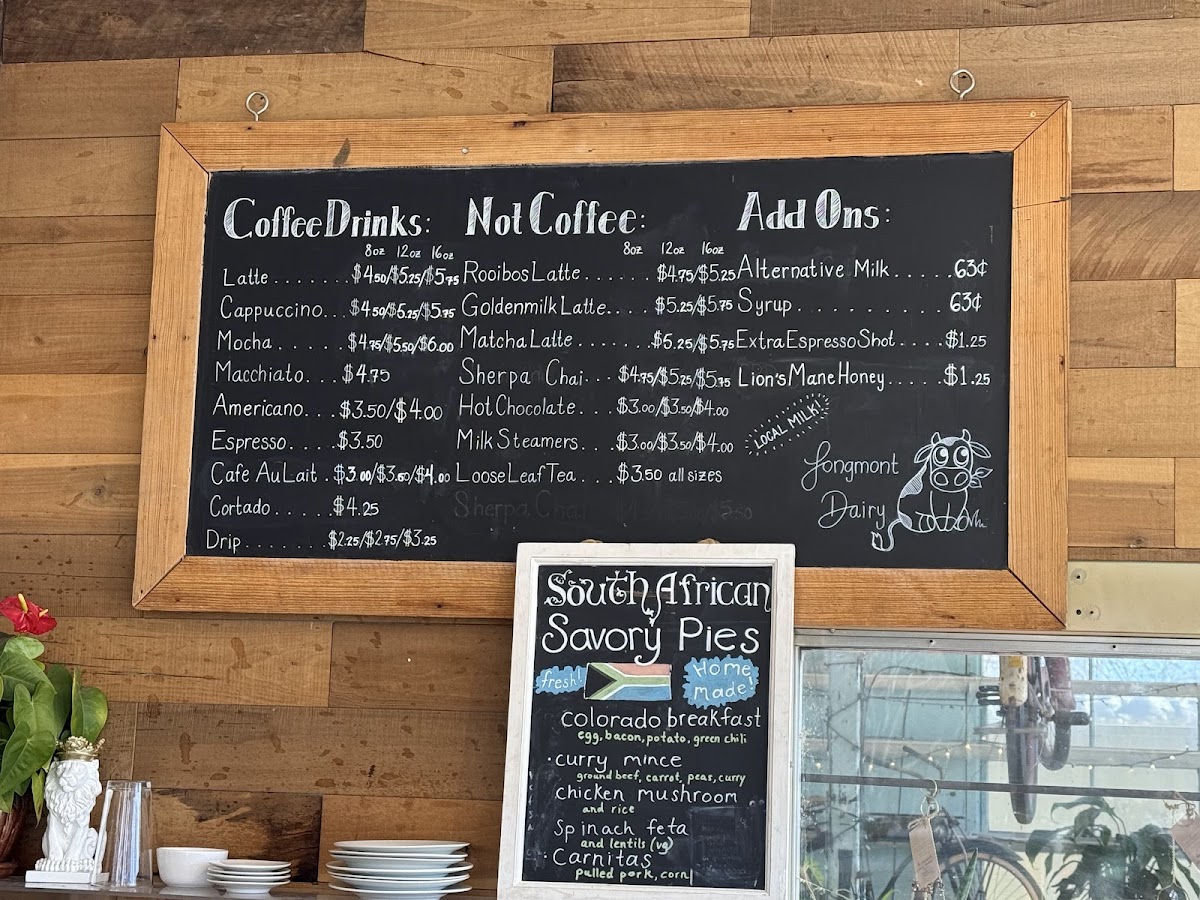 Coffee Drinks:
8oz 12oz 16oz
Latte . . . . . . . $4.50/$5.25/$5.75
Cappuccino. . . $4.50/$5.25/$5.75
Mocha . . . . . . $4.75/$5.50/$6.00
Macchiato. . . $4.75
Americano. . . $3.50/$4.00
Espresso. . . . . $3.50
Cafe Au Lait . $3.00/$3.50/$4.00
Cortado . . . . . $4.25
Drip . . . . . . . $2.25/$2.75/$3.25
Not Coffee:
8oz 12oz 16oz
Rooibos Latte . . . . . . $4.75/$5.25
Goldenmilk Latte. . . . $5.25/$5.75
Matcha Latte . . . . . . . $5.25/$5.75
Sherpa Chai. . . $4.75/$5.25/$5.75
Hot Chocolate. . . $3.00/$3.50/$4.00
Milk Steamers. . . $3.00/$3.50/$4.00
Loose Leaf Tea . . . $3.50 all sizes
Sherpa Chai
Add Ons:
Alternative Milk . . . . . 63¢
Syrup. . . . . . . . . . 63¢
Extra Espresso Shot . . . . $1.25
Lion's Mane Honey. . . . . $1.25
LOCAL MILK!
Longmont
Dairy
South African
Savory Pies
fresh!
Home
made!
colorado breakfast
egg, bacon, potato, green chili
· curry mince
ground beef, carrot, peas, curry
chicken mushroom
and rice
Spinach feta
and lentils (vg)
· Carnitas
pulled pork, corn